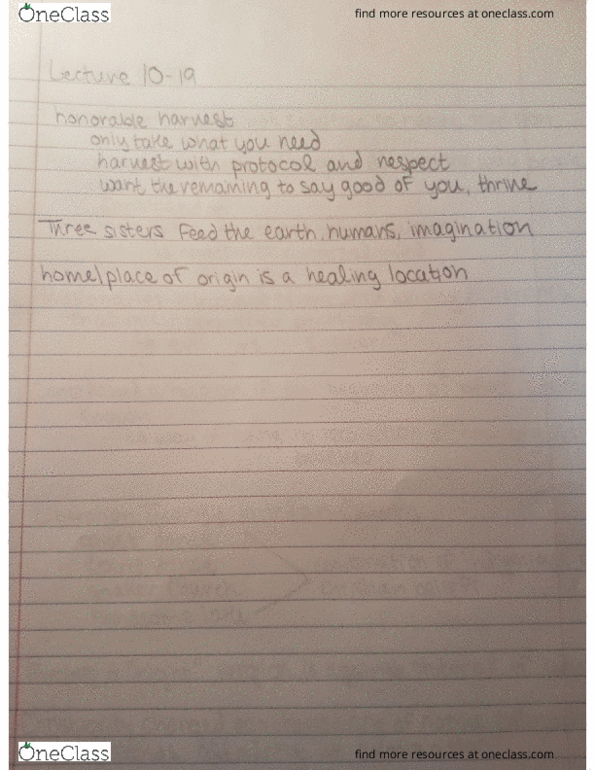 OneClass
find more resources at oneclass.com
Lecture 10-19
honorable harvest
only take what you need
harvest with protocol and respect
want the remaining to say good of you, thrive
Three sisters feed the earth, humans, imagination
home/place of origin is a healing location
OneClass
find more resources at oneclass.com